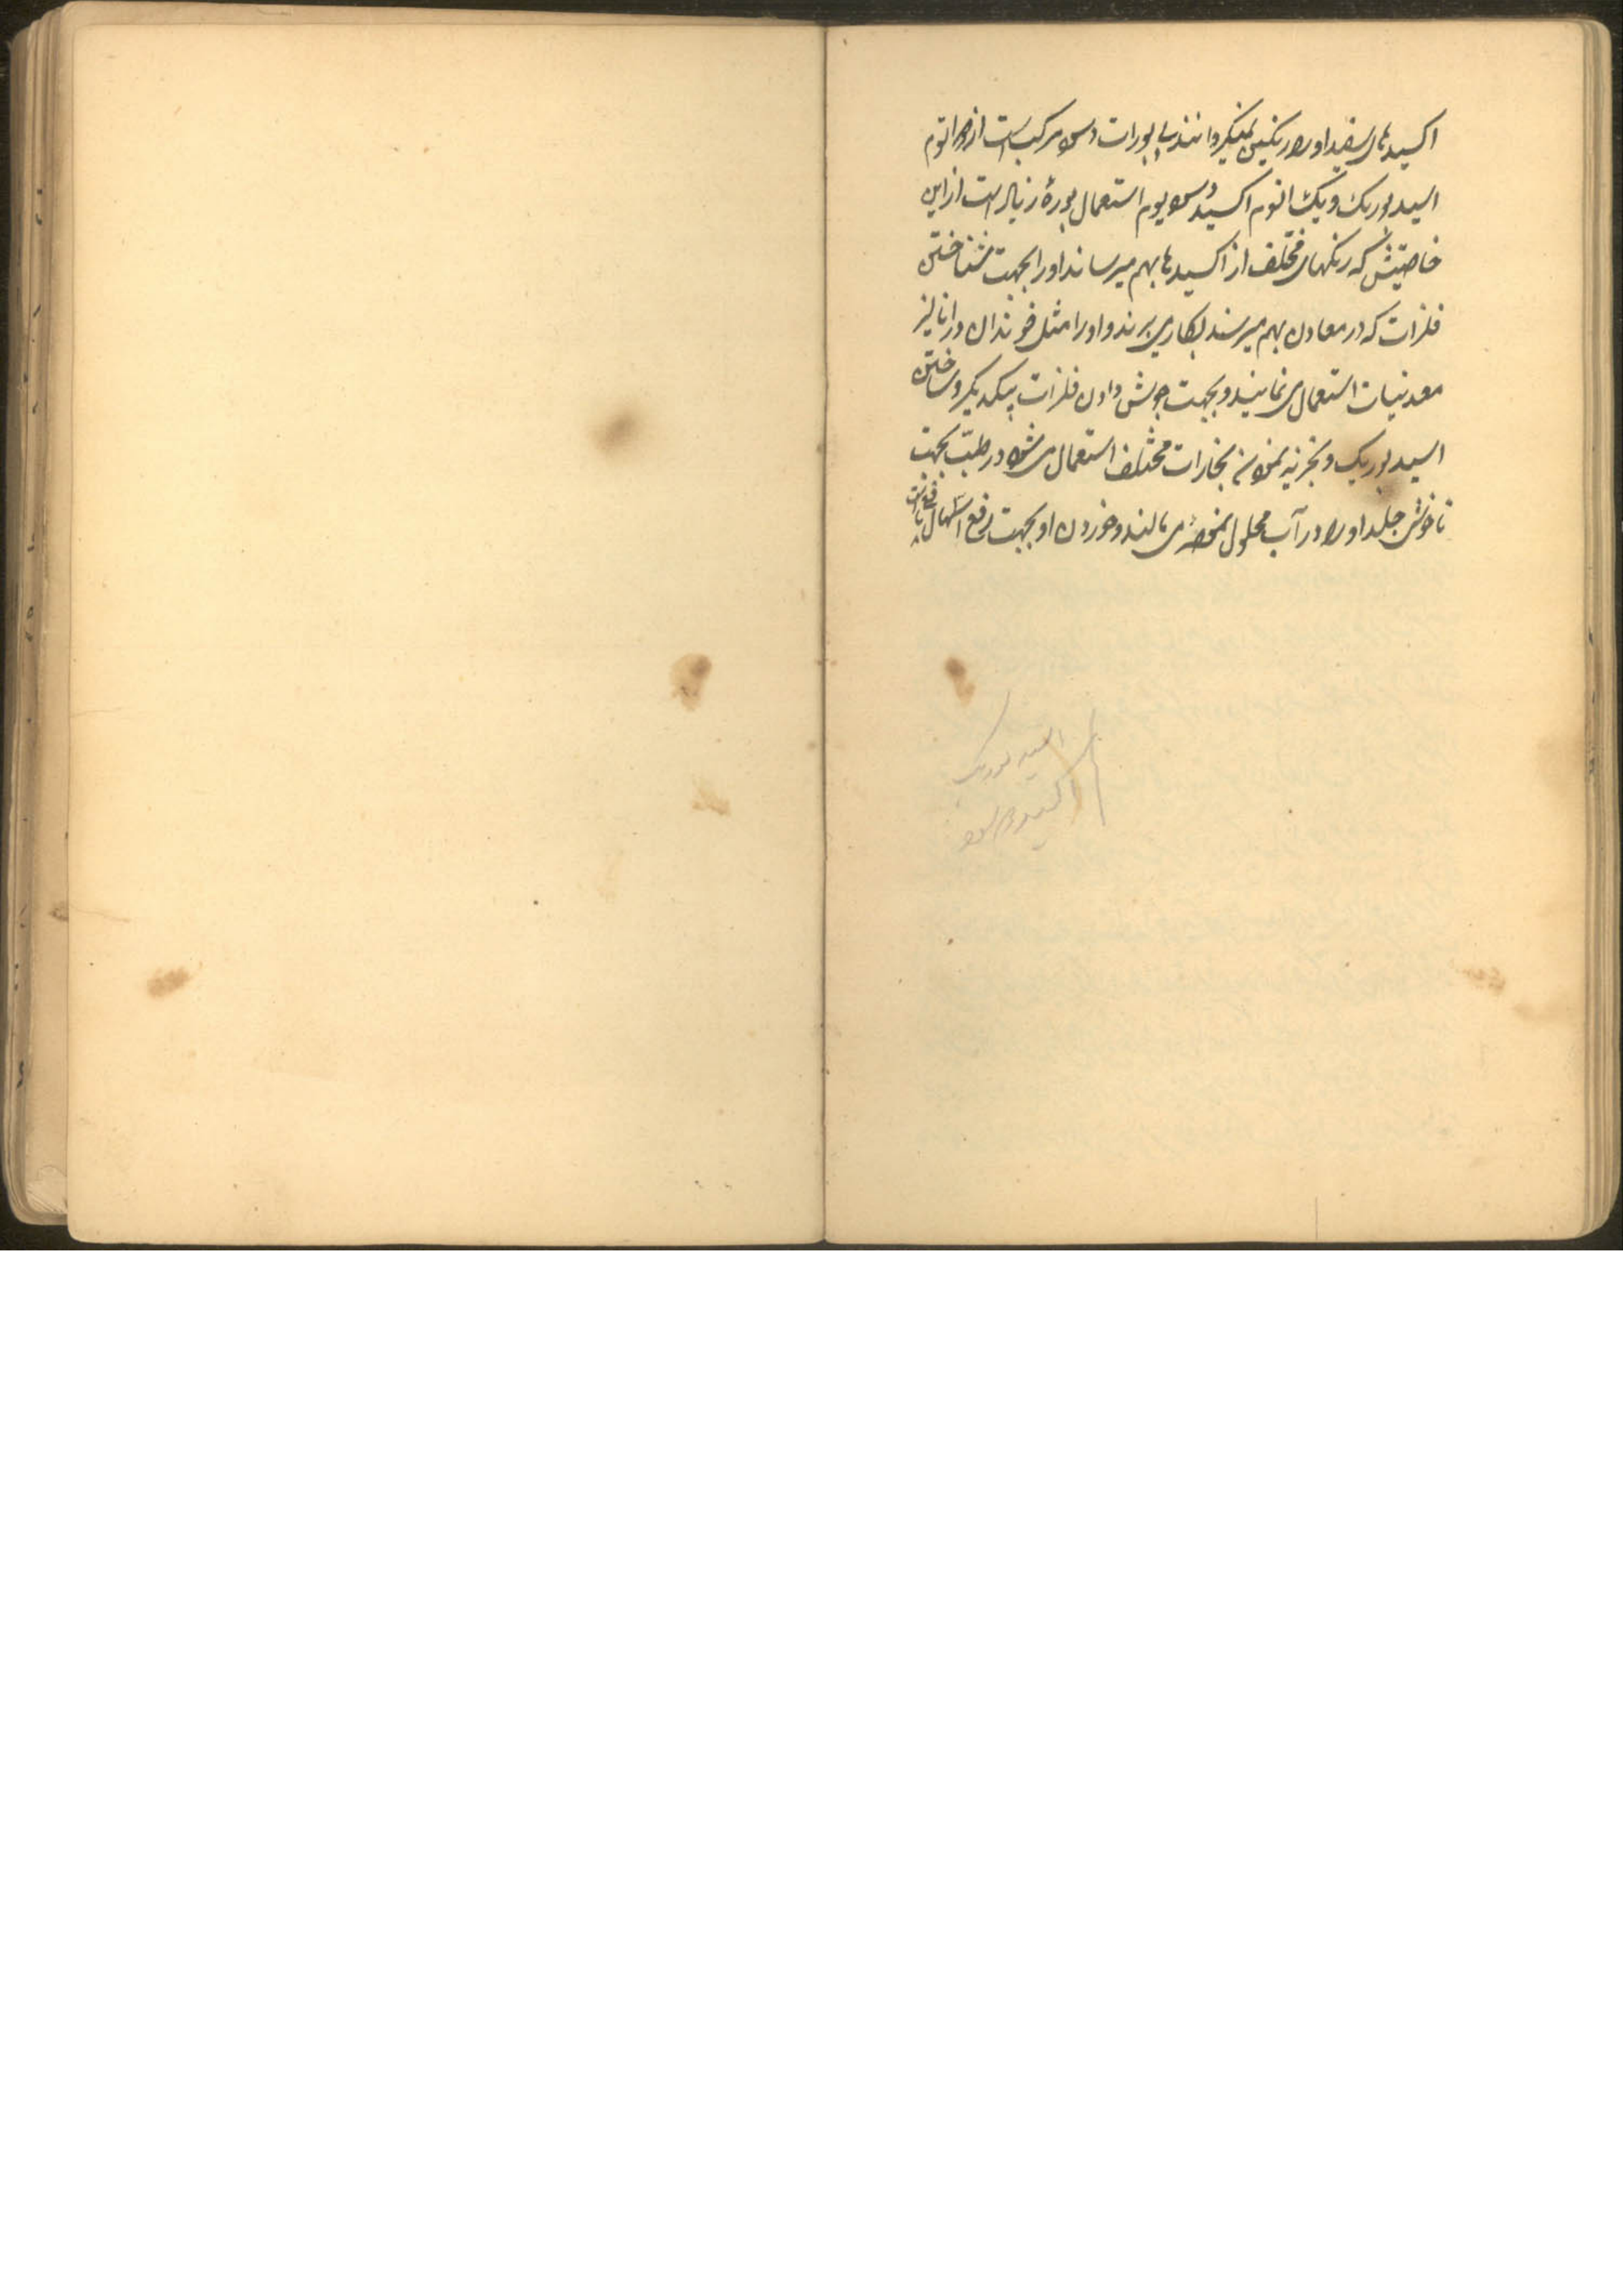 اکسیدهای سفید او را رنگین نمیگردانند بی بورات دسود مرکب است از دو اتوم
اسید بوریک و یک اتوم اکسید دسودیوم استعمال بوره زیاد است از این
خاصیتش که رنگهای مختلف از اکسیدها بهم میرساند او را بجهت شناختن
فلزات که در معادن بهم میرسند بکار می برند و او را مثل فوندان در انالیز
معدنیات استعمال می نمایند و بجهت جوش دادن فلزات بیکدیگر و ساختن
اسید بوریک و تجزیه نمودن بخارات مختلف استعمال می شود در طب بجهت
ناخوشی جلد او را در آب محلول نموده می مالند و خوردن او بجهت رفع اسهال نافع است
اسید بوریک
اکسید دسود